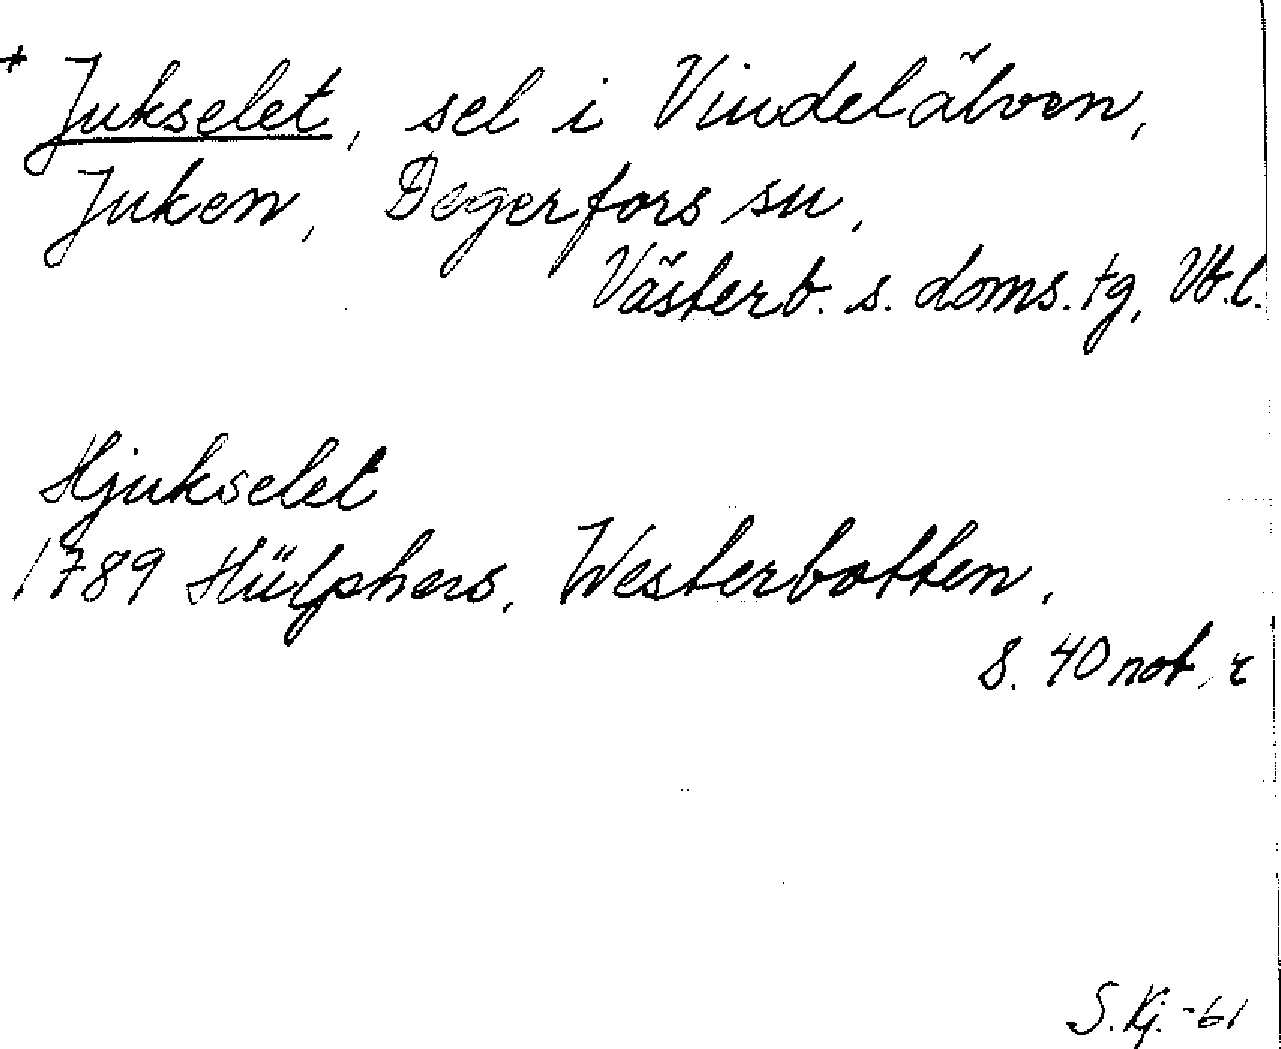 + Jukselet, sel i Vindelälven,
Juken, Degerfors sn,
Västerb. s. doms. tg, Vb.l.
Hjukselet
1789 Hülphers, Westerbotten,
s. 40 not, r
S. Kj. -61